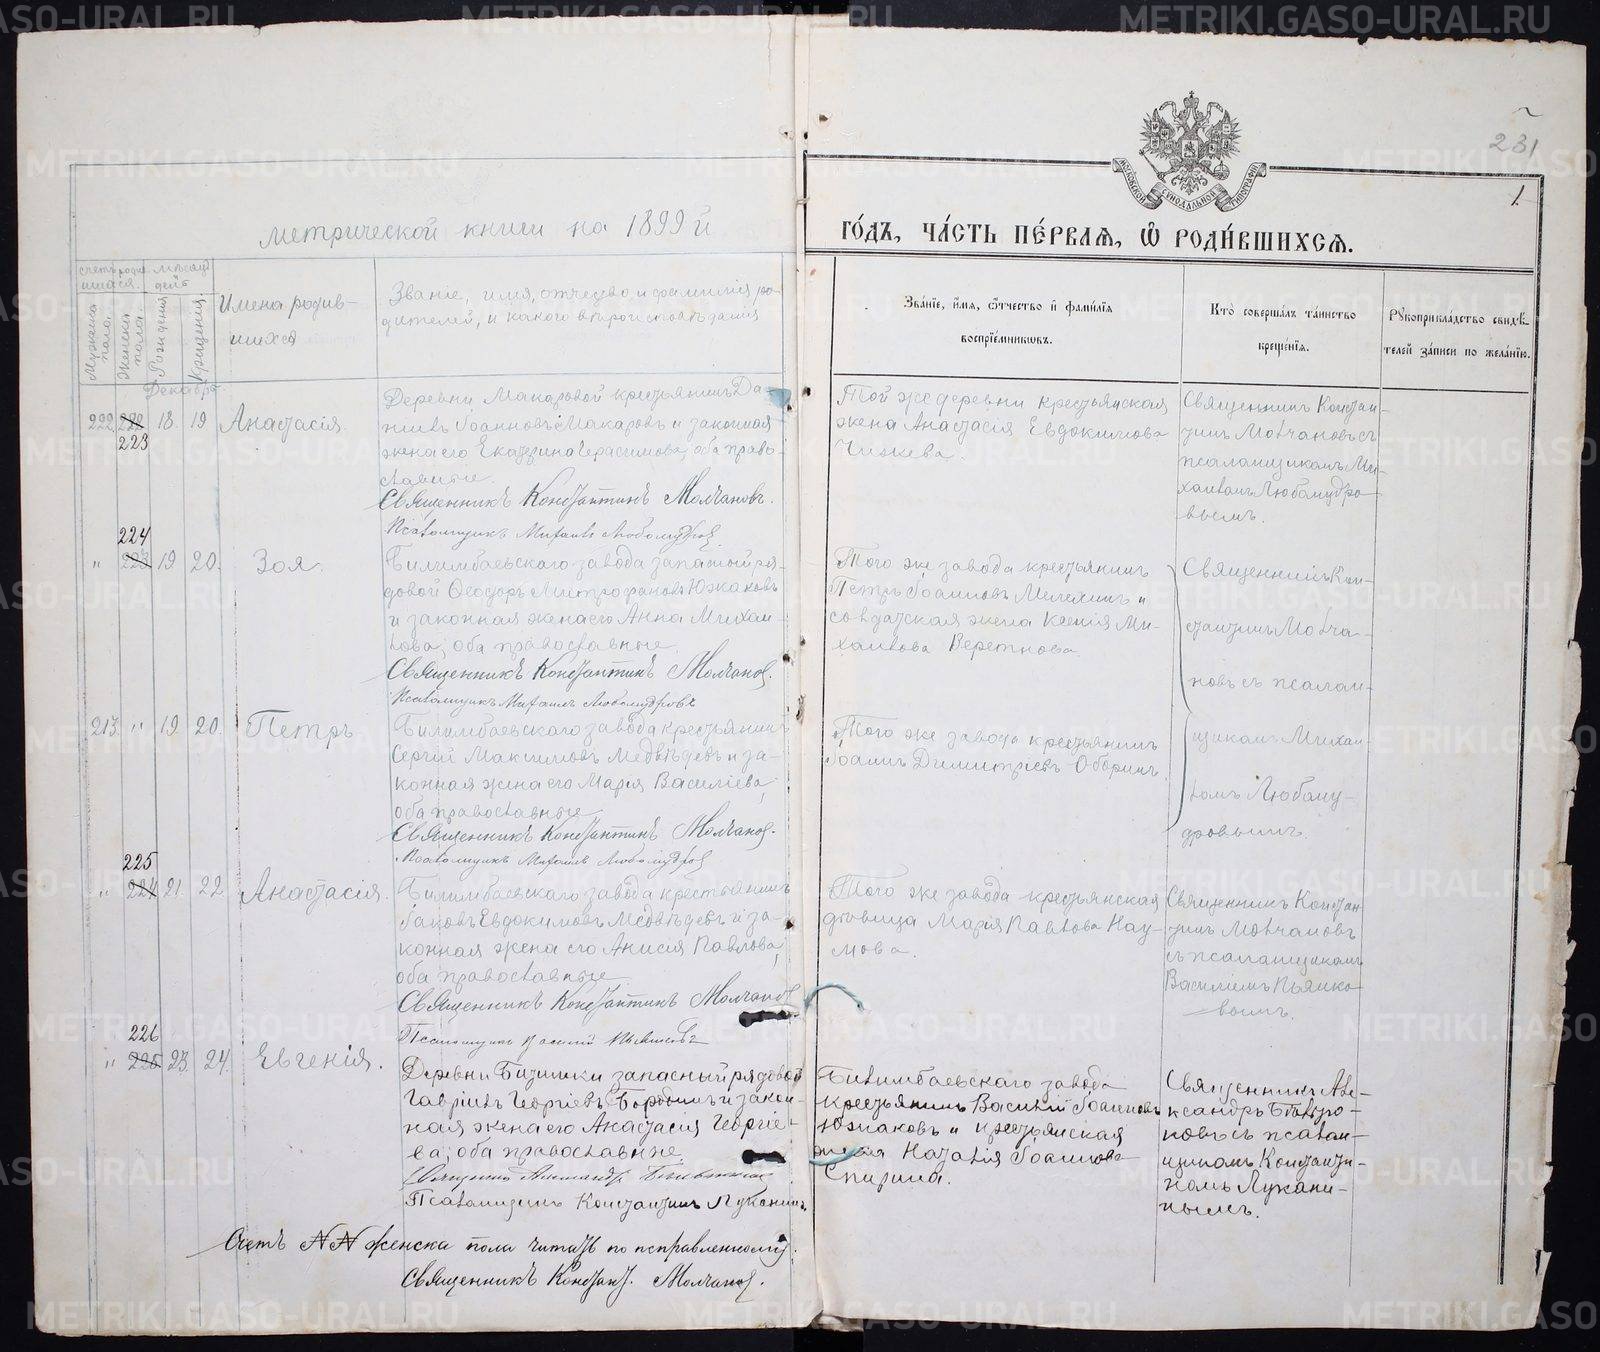 231
1.
МОСКОВСКОЙ СѴНОДАЛЬНОЙ ТИПОГРАФІИ
метрической книги на 1899 й
го́дъ, ча́сть пе́рвая, ѿ роди́вшихся.
счетъ родив-
шихся.
Мѣсяцъ
день
Мужеска пола.
Женска пола.
Рожденія
Крещенія
Имена родив-
шихся
Званіе, имя, отчество, и фамилія ро-
дителей, и какого вѣроисповѣданія
Зва́нїе, и҆́мя, ѻ҆́тчество и҆ фами́лїя
воспрїе́мниковъ.
Кто̀ соверша́лъ та́инство
креще́нїѧ.
Рꙋкоприкла́дство свидѣ́-
телей за́писи по жела́нїю.
Декабрь
222 222 18. 19 Анастасія.
223
Деревни Макаровой крестьянинъ Да-
нилъ Іоанновъ Макаровъ и законная
жена его Екатерина Герасимова, оба право-
славные.
Священникъ Константинъ Молчановъ.
Псаломщикъ Михаилъ Любомудровъ
Той же деревни крестьянская
жена Анастасія Евдокимова
Чижева.
Священникъ Констан-
тинъ Молчановъ съ
псаломщикомъ Ми-
хаиломъ Любомудро-
вымъ.
224
„ 223 19 20. Зоя.
Билимбаевскаго завода запасной ря-
довой Ѳеодоръ Митрофановъ Южаковъ
и законная жена его Анна Михаи-
лова, оба православные.
Священникъ Константинъ Молчановъ.
Псаломщикъ Михаилъ Любомудровъ
Того же завода крестьянинъ
Петръ Іоанновъ Мелехинъ и
солдатская жена Ксенія Ми-
хаилова Веретнова.
Священникъ Кон-
стантинъ Молча-
новъ съ псалом-
щикомъ Михаи-
ломъ Любому-
дровымъ.
213. „ 19 20. Петръ
Билимбаевскаго завода крестьянинъ
Сергій Максимовъ Медвѣдевъ и за-
конная жена его Марія Василіева,
оба православные
Священникъ Константинъ Молчановъ.
Псаломщикъ Михаилъ Любомудровъ
Того же завода крестьянинъ
Іоаннъ Димитріевъ Оборинъ.
225
„ 224 21. 22 Анастасія.
Билимбаевскаго завода крестьянинъ
Іаковъ Евдокимовъ Медвѣдевъ и за-
конная жена его Анисія Павлова,
оба православные
Священникъ Константинъ Молчановъ
Псаломщикъ Василій
Того же завода крестьянская
дѣвица Марія Павлова Нау-
мова.
Священникъ Констан-
тинъ Молчановъ
съ псаломщикомъ
Василіемъ Пьянко-
вымъ.
226
„ 225 23. 24. Евгенія.
Деревни запасный рядовой
Гавріилъ Георгіевъ Бородинъ и закон-
ная жена его Анастасія Георгіе-
ва, оба православные.
Священникъ Александръ
Псаломщикъ Константинъ Луканинъ.
Билимбаевскаго завода
крестьянинъ Василій Іоанновъ
Южаковъ и крестьянская
жена Наталія Іоаннова
Спирина.
Священникъ Але-
ксандръ
новъ съ псалом-
щикомъ Константи-
номъ Лукани-
нымъ.
Счетъ №№ женска пола читать по исправленному.
Священникъ Констант. Молчановъ.
METRIKI.GASO-URAL.RU